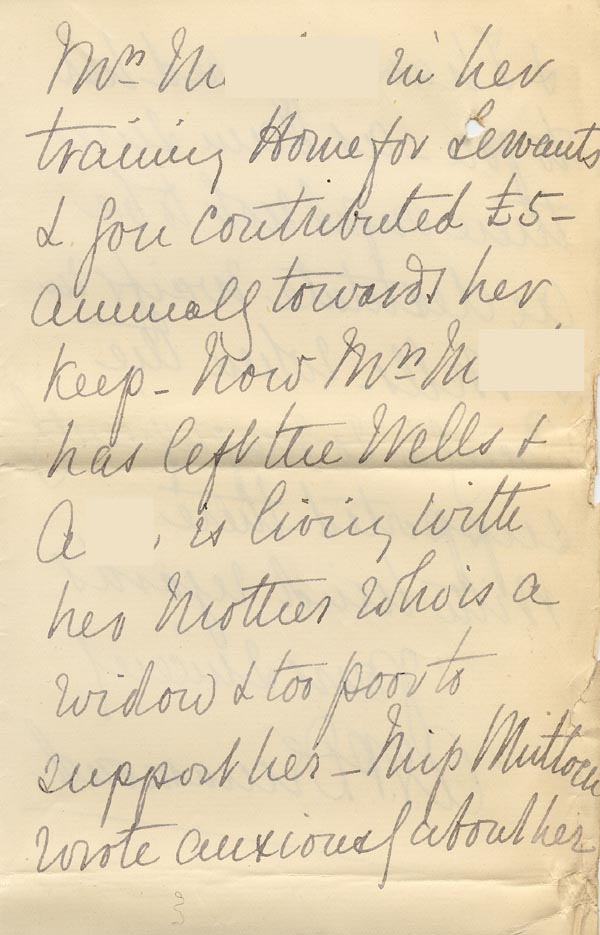 Mrs M in her
training Home for Servants
& you contributed £5-
annually towards her
keep - Now Mrs M
has left the Wells &
A , is living with
her Mother who is a
widow & too poor to
support her - Miss
wrote anxiously about her